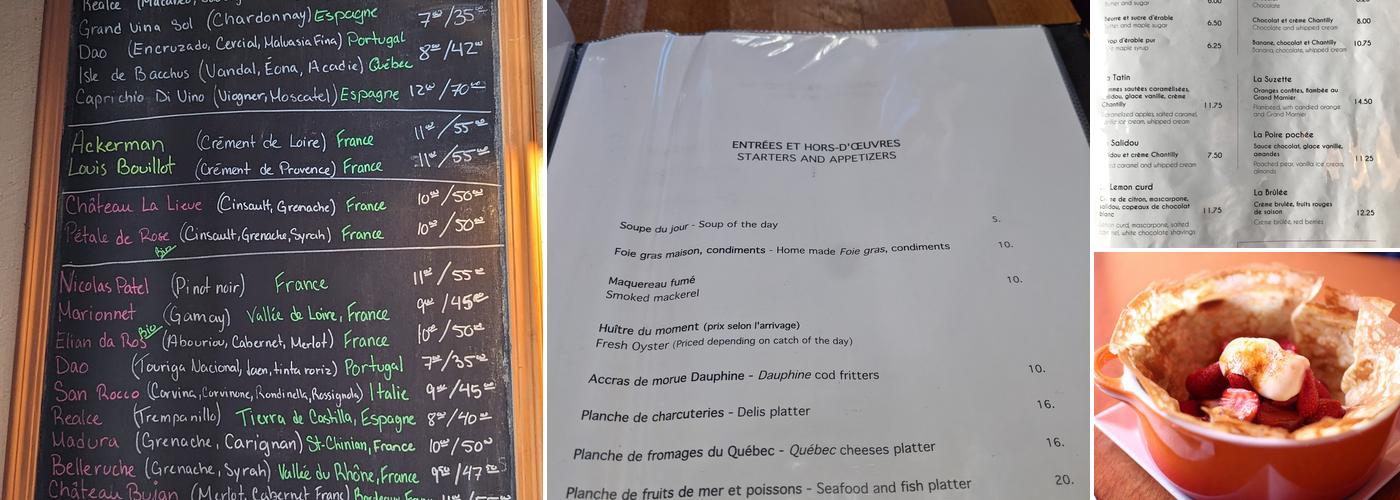 Realce
Grand Vina Sol (Chardonnay) Espagne 7⁰⁰/35⁰⁰
Dao (Encruzado, Cercial, Malvasia Fina) Portugal 8⁰⁰/42⁰⁰
Isle de Bacchus (Vandal, Éona, Acadie) Québec
Caprichio Di Vino (Viogner, Moscatel) Espagne 12⁰⁰/70⁰⁰
Ackerman (Crément de Loire) France 11⁰⁰/55⁰⁰
Louis Bouillot (Crément de Provence) France 11⁰⁰/55⁰⁰
Château La Lieue (Cinsault, Grenache) France 10⁰⁰/50⁰⁰
Pétale de Rose (Cinsault, Grenache, Syrah) France 10⁰⁰/50⁰⁰
Bio
Nicolas Patel (Pinot noir) France 11⁰⁰/55⁰⁰
Marionnet (Gamay) Vallée de Loire, France 9⁰⁰/45⁰⁰
Bio
Elian da Ros (Abouriou, Cabernet, Merlot) France 10⁰⁰/50⁰⁰
Dao (Touriga Nacional, Jaen, tinta roriz) Portugal 7⁰⁰/35⁰⁰
San Rocco (Corvina, Corvinone, Rondinella, Rossignola) Italie 9⁰⁰/45⁰⁰
Realce (Trempanillo) Tierra de Castilla, Espagne 8⁰⁰/40⁰⁰
Madura (Grenache, Carignan) St-Chinian, France 10⁰⁰/50⁰⁰
Belleruche (Grenache, Syrah) Vallée du Rhône, France 9⁵⁰/47
Château Bujan (Merlot, Cabernet Franc)
ENTRÉES ET HORS-D'ŒUVRES
STARTERS AND APPETIZERS
Soupe du jour - Soup of the day 5.
Foie gras maison, condiments - Home made Foie gras, condiments 10.
Maquereau fumé 10.
Smoked mackerel
Huître du moment (prix selon l'arrivage)
Fresh Oyster (Priced depending on catch of the day)
Accras de morue Dauphine - Dauphine cod fritters 10.
Planche de charcuteries - Delis platter 16.
Planche de fromages du Québec - Québec cheeses platter 16.
Planche de fruits de mer et poissons - Seafood and fish platter 20.
and sugar
eurre et sucre d'érable 6.50
and maple sugar
op d'érable pur 6.25
maple syrup
Tatin
mmes sautées caramélisées,
glace vanille, crème
Chantilly 11.75
caramelized apples, salted caramel,
ice cream, whipped cream
Salidou
idou et crème Chantilly 7.50
caramel and whipped cream
Lemon curd
de citron, mascarpone,
salidou, copeaux de chocolat
blanc 11.75
curd, mascarpone, salted
white chocolate shavings
Chocolate
Chocolat et crème Chantilly 8.00
Chocolate and whipped cream
Banane, chocolat et Chantilly 10.75
Banana, chocolate, whipped cream
La Suzette
Oranges confites, flambée au
Grand Marnier 14.50
Flambéed, with candied orange
and Grand Marnier
La Poire pochée
Sauce chocolat, glace vanille,
amandes 11.25
Poached pear, vanilla ice cream,
almonds
La Brûlée
Crème brûlée, fruits rouges
de saison 12.25
Crème brûlée, red berries